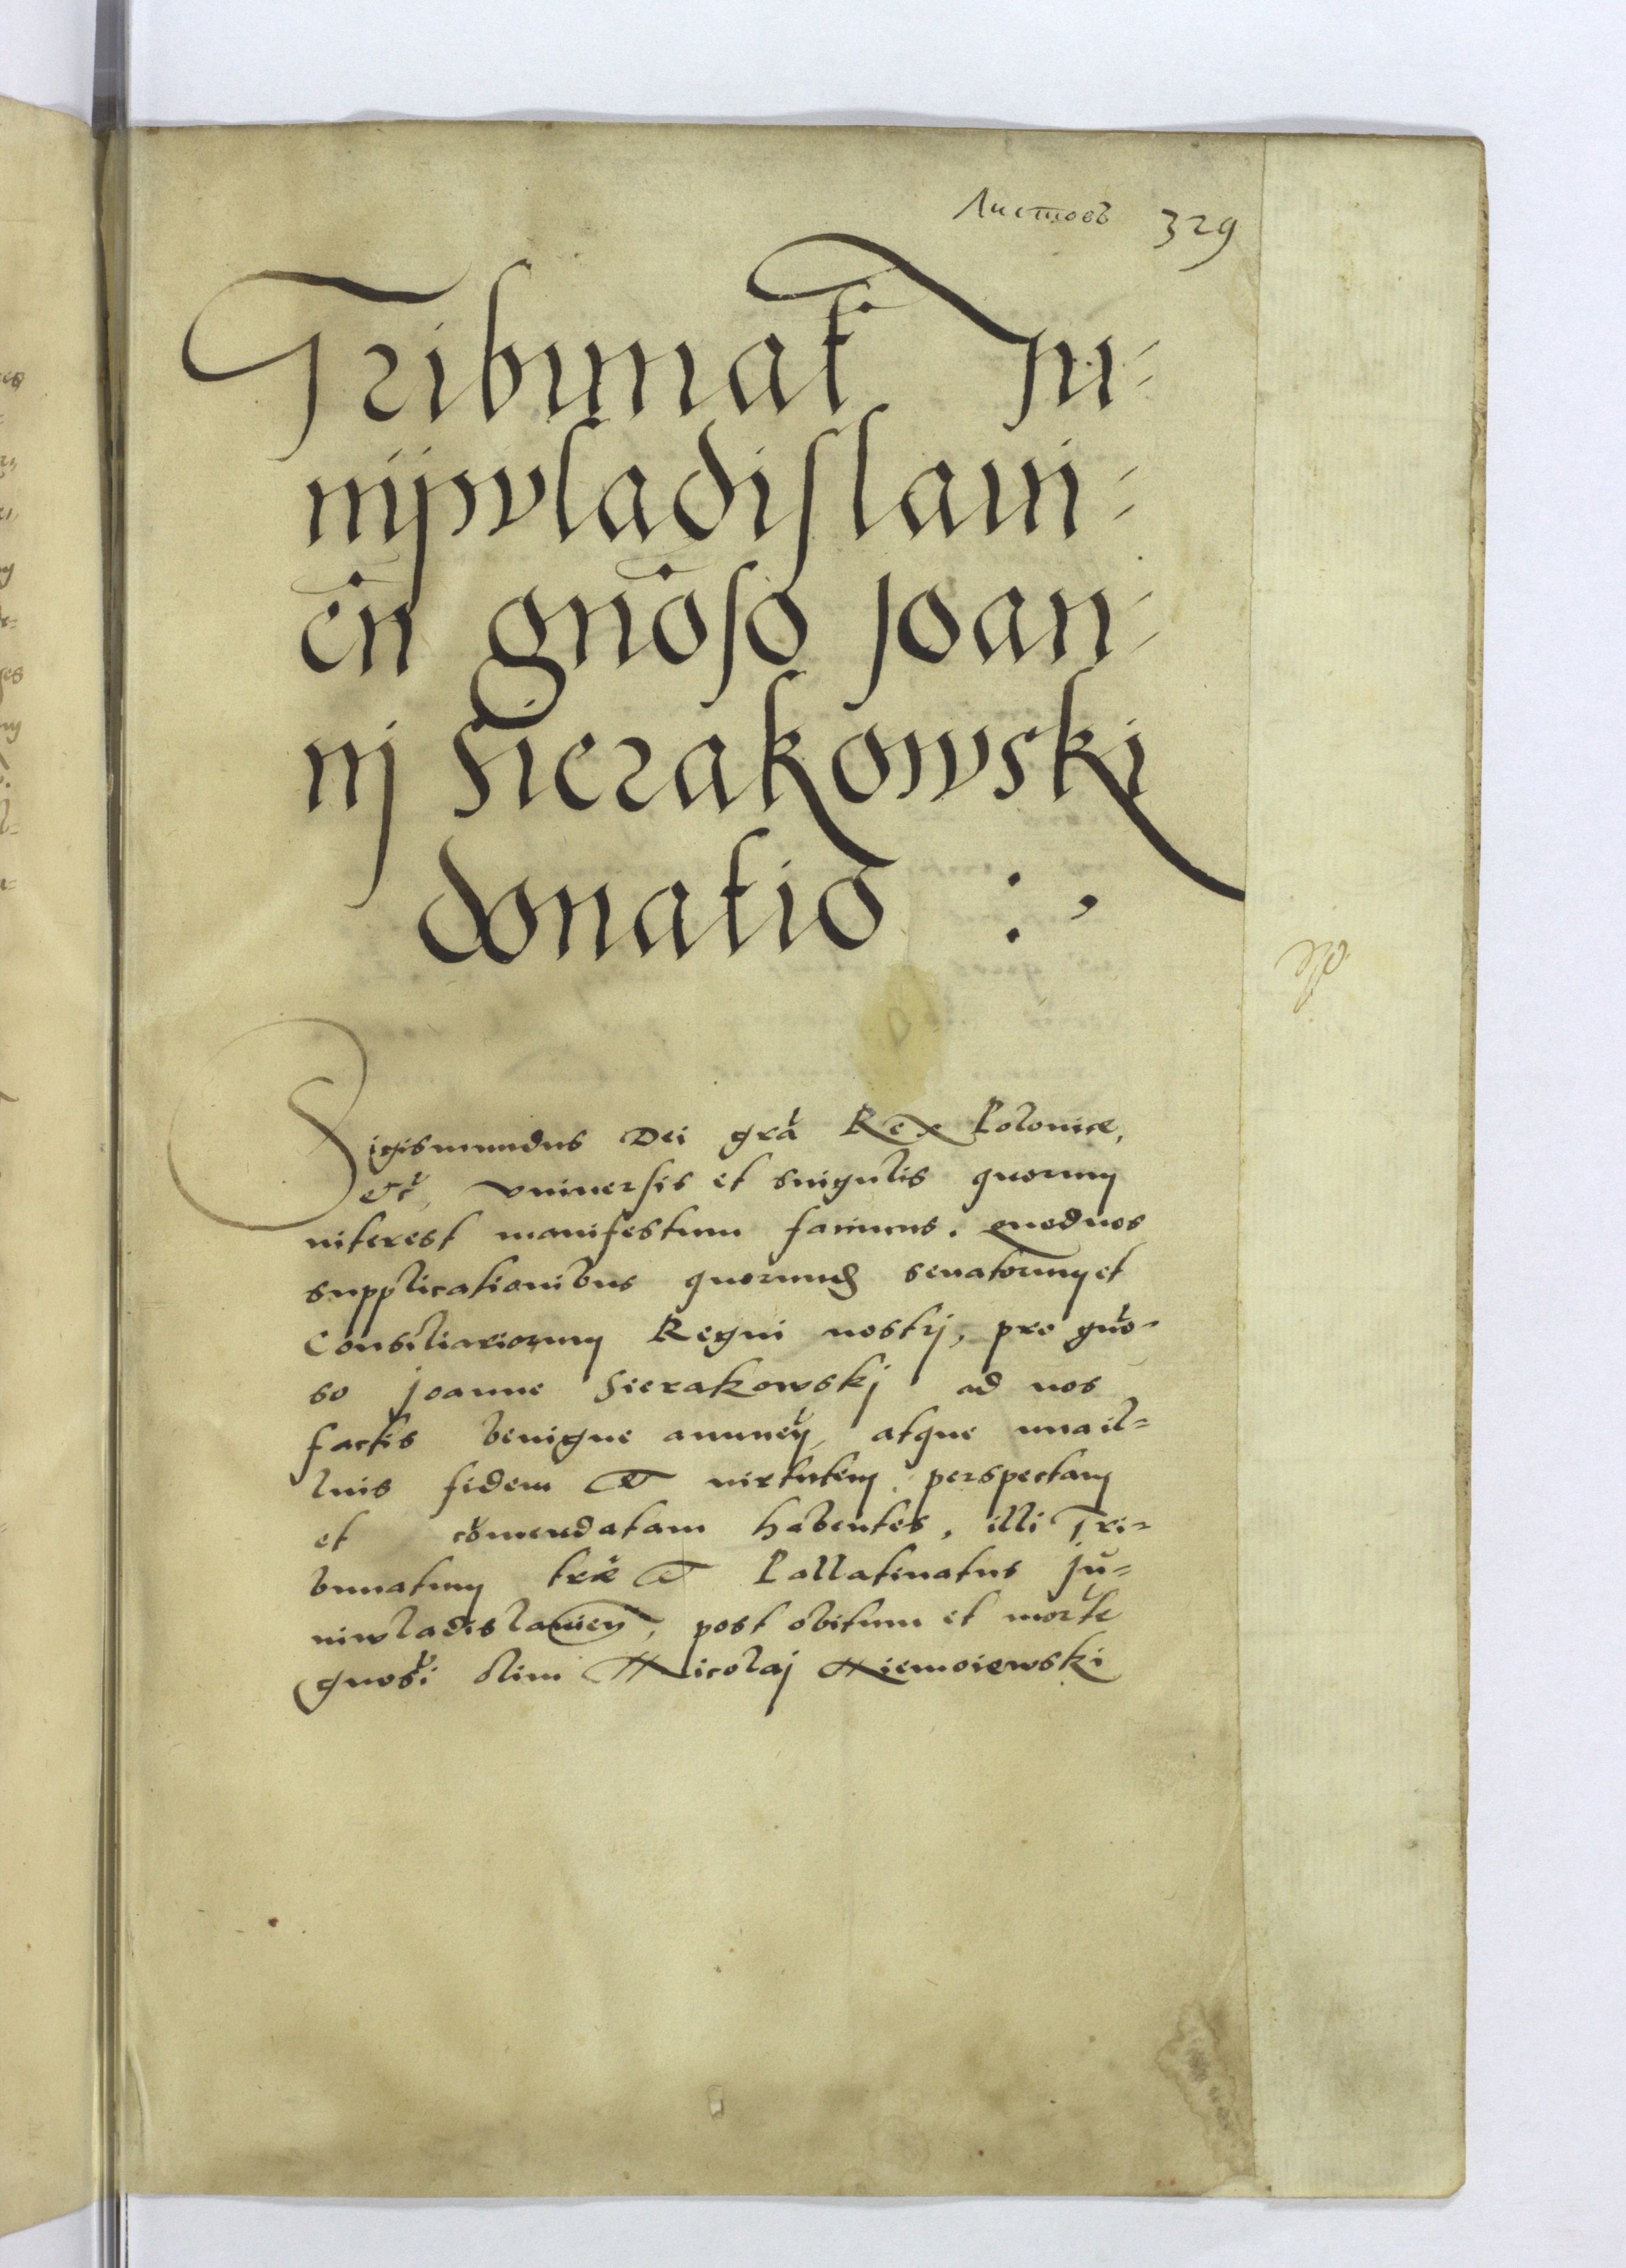 Листовъ 329
Tribunat Ju-
nijwladislaui-
en̄ gnōso Joan-
nj Sierakowskj
donatio :,
Sigismundus Dei grā Rex Poloniæ,
etč, vniuersis et singulis quorum
interest manifestum facimus. Quod nos
supplicationibus quorund senatorum et
Consiliariorum Regni nostrj, pro gnō-
so Joanne Sierakowskj ad nos
factis benigne annueň, atque una il-
luis fidem et virtutem perspectam
et cōmendatam habentes, illi Tri-
bunatum trǣ et Pallatinatus Ju-
niwladislauień, post obitum et mortē
gnosī olim Nicolaj Niemoiewski